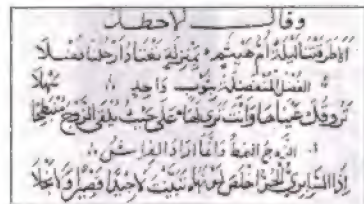 وقال الاخطل
الا طرقتنا ليلة ام هيثم بمنزلة تعتاد ارحلنا فضلا
الفضل المتفضلة بثوب واحد سهلا
تروقك عيناها وانت ترى لها على حيث يلقى الزوج منبطحا
الزوج النمط وانما اراد الفراش
اذا السابري الحر اخلص لونها تبينت لا جيدا قصيرا ولا عطلا